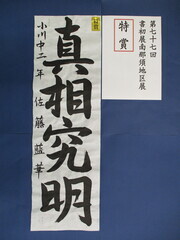 第七十七回
書初展南那須地区展
特賞
真相究明
小川中二年 佐藤藍華